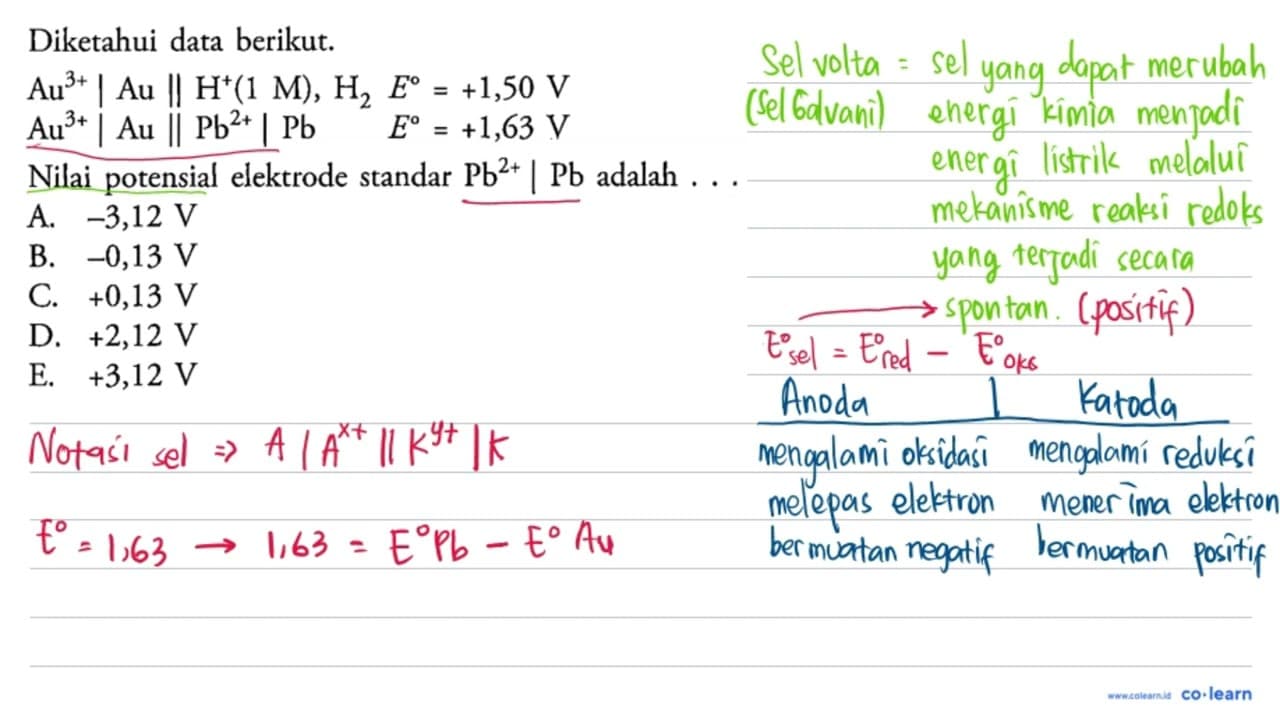 Diketahui data berikut.
Au³⁺ | Au || H⁺(1 M), H₂ E° = +1,50 V
Au³⁺ | Au || Pb²⁺ | Pb E° = +1,63 V
Nilai potensial elektrode standar Pb²⁺ | Pb adalah . . .
A. –3,12 V
B. –0,13 V
C. +0,13 V
D. +2,12 V
E. +3,12 V
Notasi sel ⇒ A | Aˣ⁺ || Kʸ⁺ | K
E° = 1,63 → 1,63 = E°Pb – E° Au
Sel volta = sel yang dapat merubah
(Sel Galvani) energi kimia menjadi
energi listrik melalui
mekanisme reaksi redoks
yang terjadi secara
→ spontan. (positif)
E°sel = E°red – E°oks
Anoda | Katoda
mengalami oksidasi mengalami reduksi
melepas elektron menerima elektron
bermuatan negatif bermuatan positif
www.colearn.id co·learn